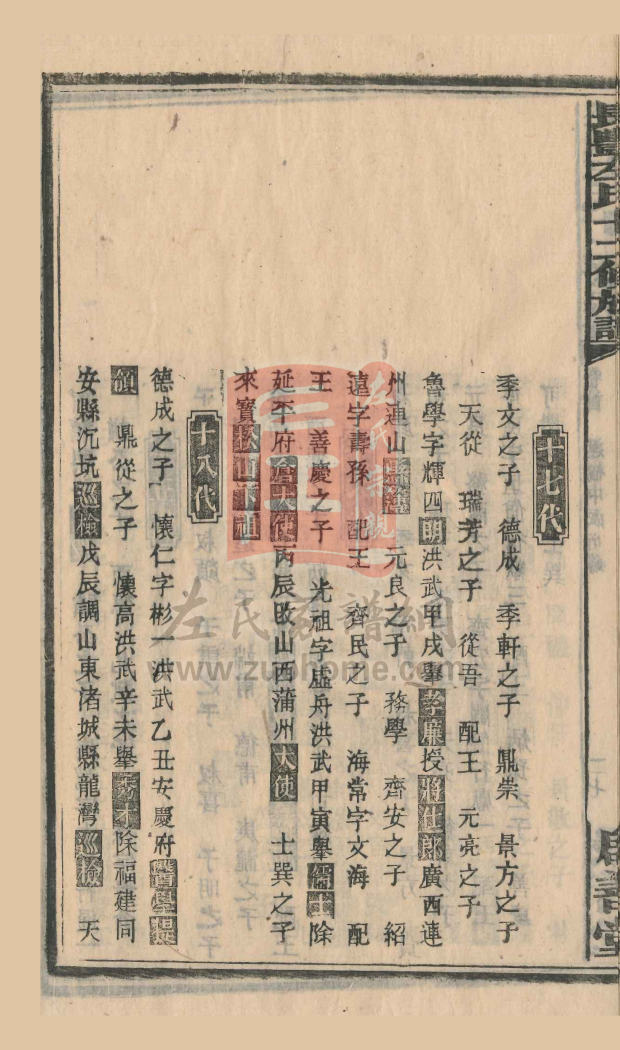 長豐左氏十二修族譜
十七代
季文之子　德成　季軒之子　鼎崇　景方之子
天從　瑞芳之子　從吾　配王　元亮之子
魯學字輝四明洪武甲戌舉孝廉授將仕郎廣西連
州連山縣 元良之子　務學　齊安之子　紹
遠字壽孫　配王　齊民之子　海常字文海　配
王　善慶之子　光祖字虛舟洪武甲寅舉儒士除
延平府倉大使丙辰改山西蒲州大使　士巽之子
來寶
十八代
德成之子　懷仁字彬一洪武乙丑安慶府醫學提
領　鼎從之子　懷高洪武辛未舉秀才除福建同
安縣沉坑巡檢戊辰調山東渚城縣龍灣巡檢　天
左氏家譜網
www.zuohome.com